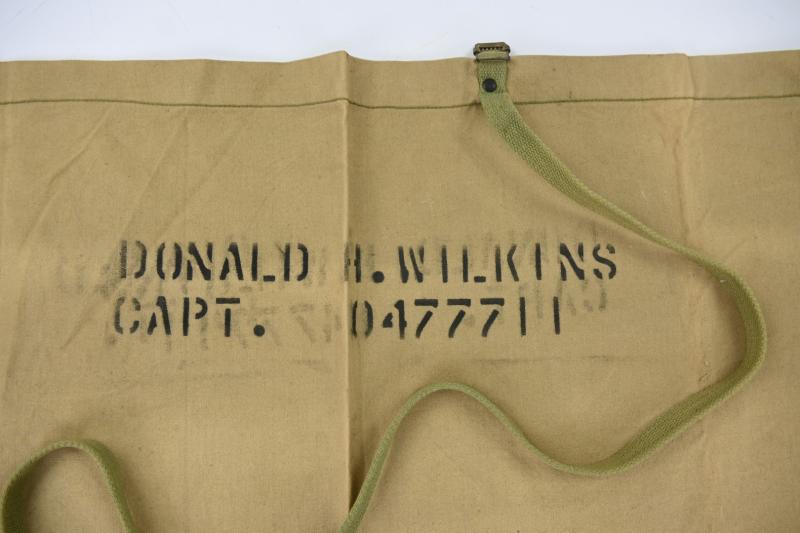 DONALD H. WILKINS
CAPT. 0477711